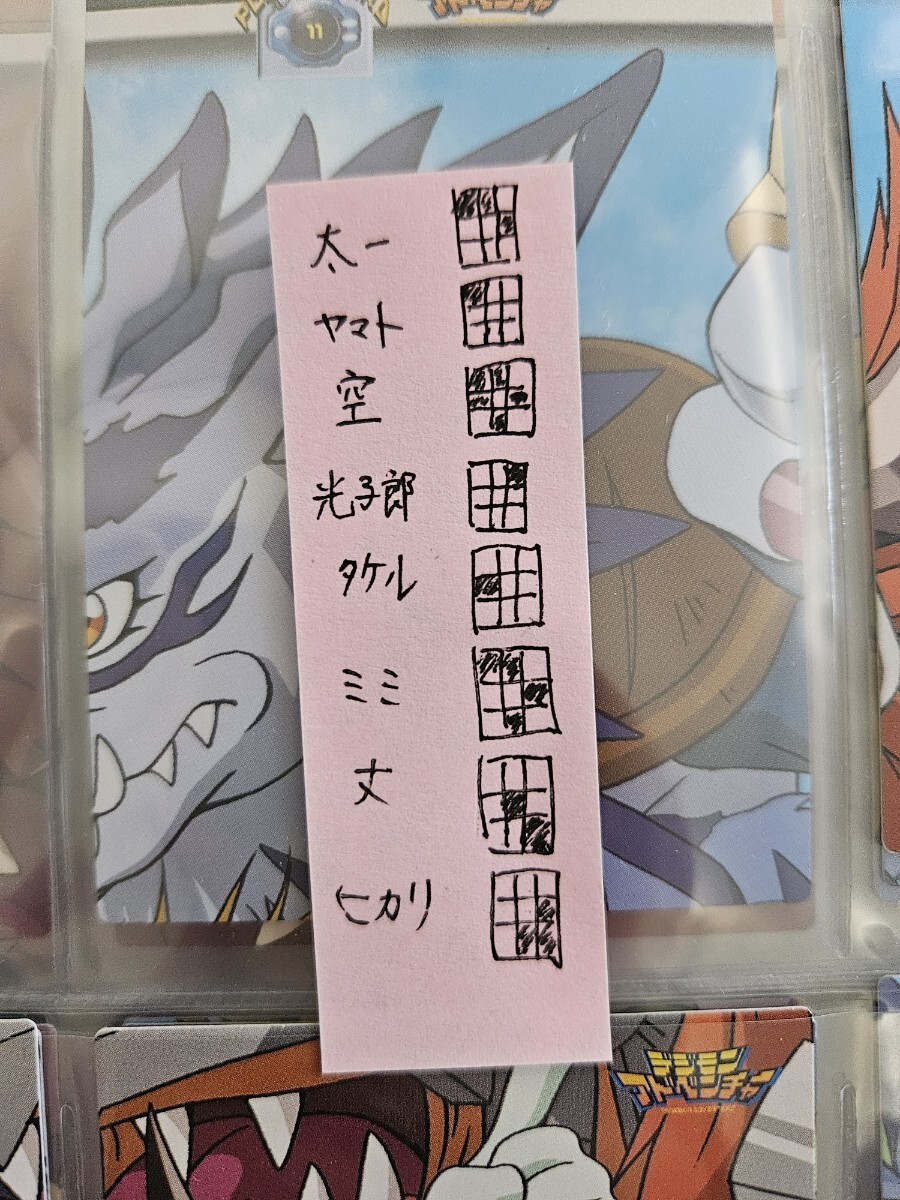 11
太一
ヤマト
空
光子郎
タケル
ミミ
丈
ヒカリ
デジモン
アドベンチャー